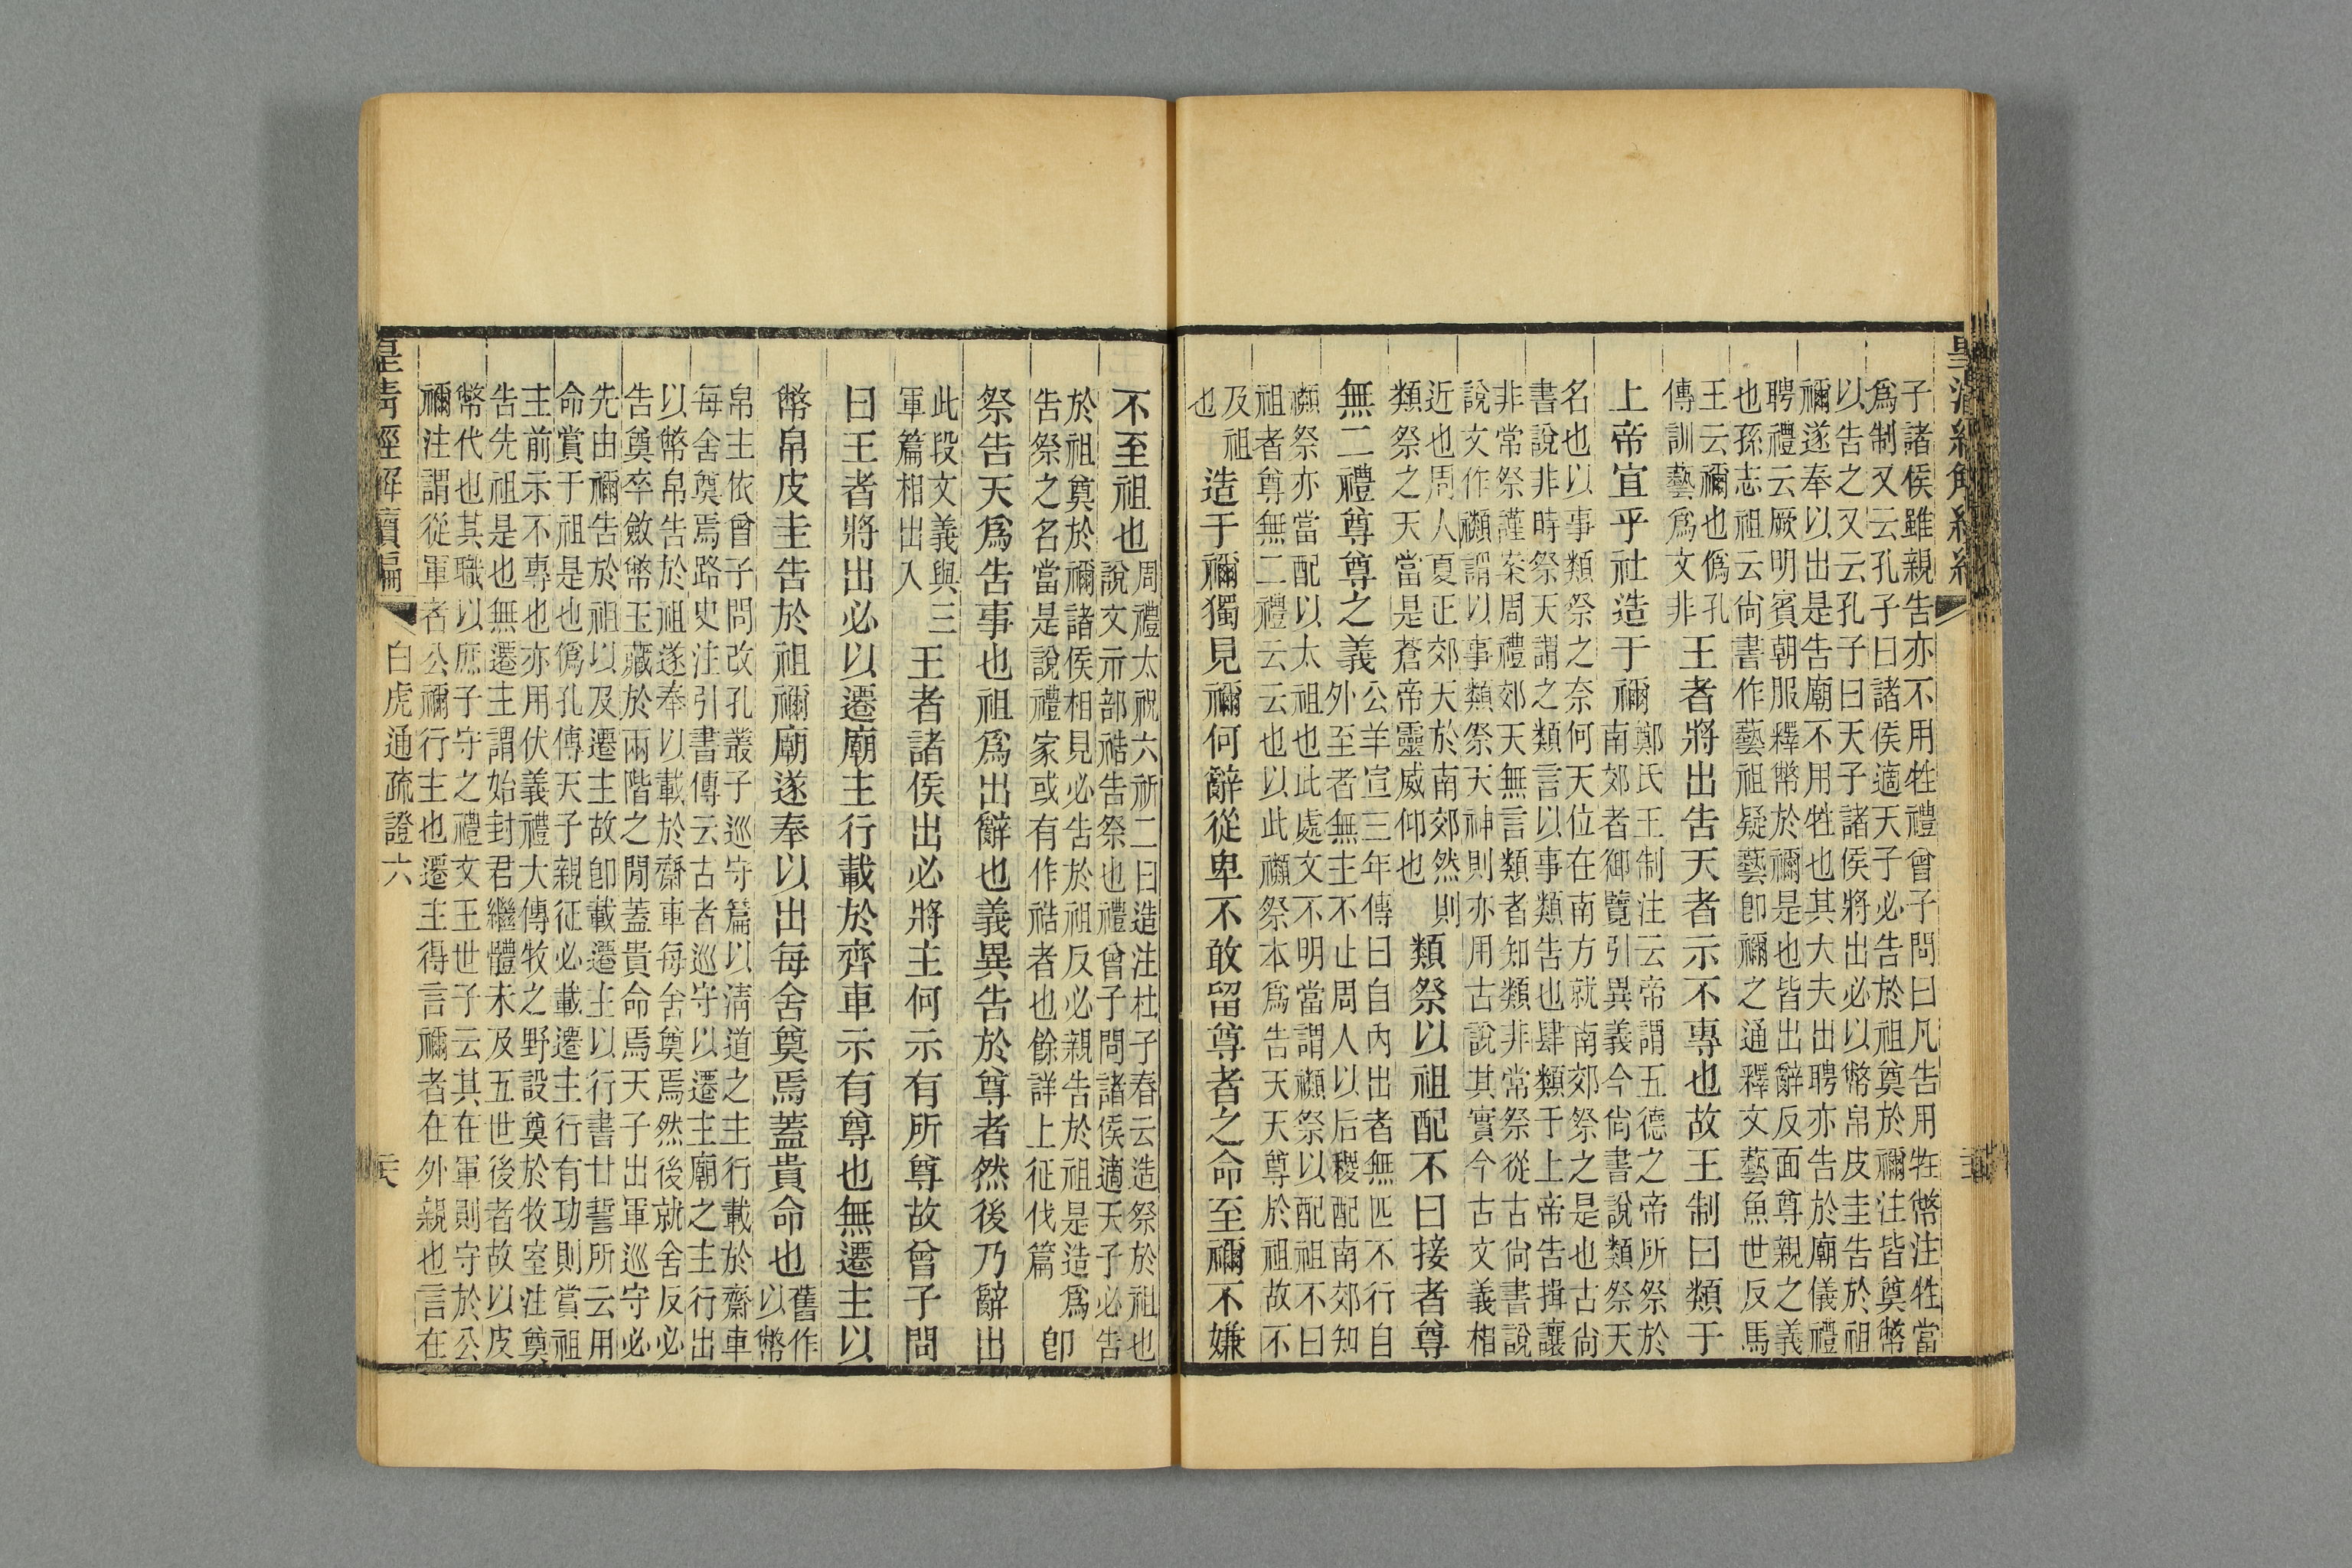 子諸侯雖親告亦不用牲禮曾子問曰凡告用牲幣注牲當
爲制又云孔子曰諸侯適天子必告於祖奠於禰注皆奠幣
以告之又云孔子曰天子諸侯將出必以幣帛皮圭告於祖
禰遂奉以出是告廟不用牲也其大夫出聘亦告於廟儀禮
聘禮云厥明賓朝服釋幣於禰是也皆出辭反面尊親之義
也孫志祖云尙書作藝祖疑藝卽禰之通釋文藝魚世反馬
王云禰也僞孔
傳訓藝爲文非
王者將出告天者示不專也故王制曰類于
上帝宜乎社造于禰
鄭氏王制注云帝謂五德之帝所祭於
南郊者御覽引異義今尙書說類祭天
名也以事類祭之奈何天位在南方就南郊祭之是也古尙
書說非時祭天謂之類言以事類告也肆類于上帝告揖讓
非常祭謹案周禮郊天無言類者知類非常祭從古尙書說
說文作禷謂以事類祭天神則亦用古說其實今古文義相
近也周人夏正郊天於南郊然則
類祭之天當是蒼帝靈威仰也
類祭以祖配不曰接者尊
無二禮尊尊之義
公羊宣三年傳曰自內出者無匹不行自
外至者無主不止周人以后稷配南郊知
禷祭亦當配以太祖也此處文不明當謂禷祭以配祖不曰
祖者尊無二禮云云也以此禷祭本爲告天天尊於祖故不
及祖
也
造于禰獨見禰何辭從卑不敢留尊者之命至禰不嫌
不至祖也
周禮太祝六祈二曰造注杜子春云造祭於祖也
說文示部祰告祭也禮曾子問諸侯適天子必告
於祖奠於禰諸侯相見必告於祖反必親告於祖是造爲
告祭之名當是說禮家或有作祰者也餘詳上征伐篇
卽
祭告天爲告事也祖爲出辭也義異告於尊者然後乃辭出
此段文義與三
軍篇相出入
王者諸侯出必將主何示有所尊故曾子問
曰王者將出必以遷廟主行載於齊車示有尊也無遷主以
幣帛皮圭告於祖禰廟遂奉以出每舍奠焉蓋貴命也
舊作
以幣
帛主依曾子問改孔叢子巡守篇以淸道之主行載於齋車
每舍奠焉路史注引書傳云古者巡守以遷主廟之主行出
以幣帛告於祖遂奉以載於齋車每舍奠焉然後就舍反必
告奠卒斂幣玉藏於兩階之閒蓋貴命焉天子出軍巡守必
先由禰告於祖以及遷主故卽載遷主以行書甘誓所云用
命賞于祖是也僞孔傳天子親征必載遷主行有功則賞祖
主前示不專也亦用伏義禮大傳牧之野設奠於牧室注奠
告先祖是也無遷主謂始封君繼體未及五世後者故以皮
幣代也其職以庶子守之禮文王世子云其在軍則守於公
禰注謂從軍者公禰行主也遷主得言禰者在外親也言在
皇淸經解續編
白虎通疏證六